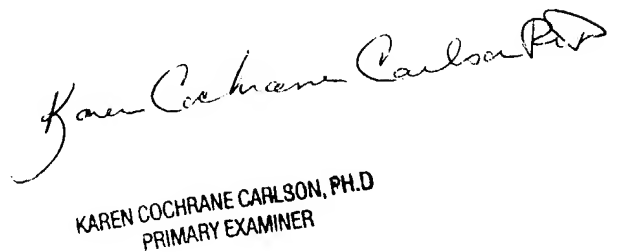 Karen Cochrane Carlson PhD
KAREN COCHRANE CARLSON, PH.D
PRIMARY EXAMINER